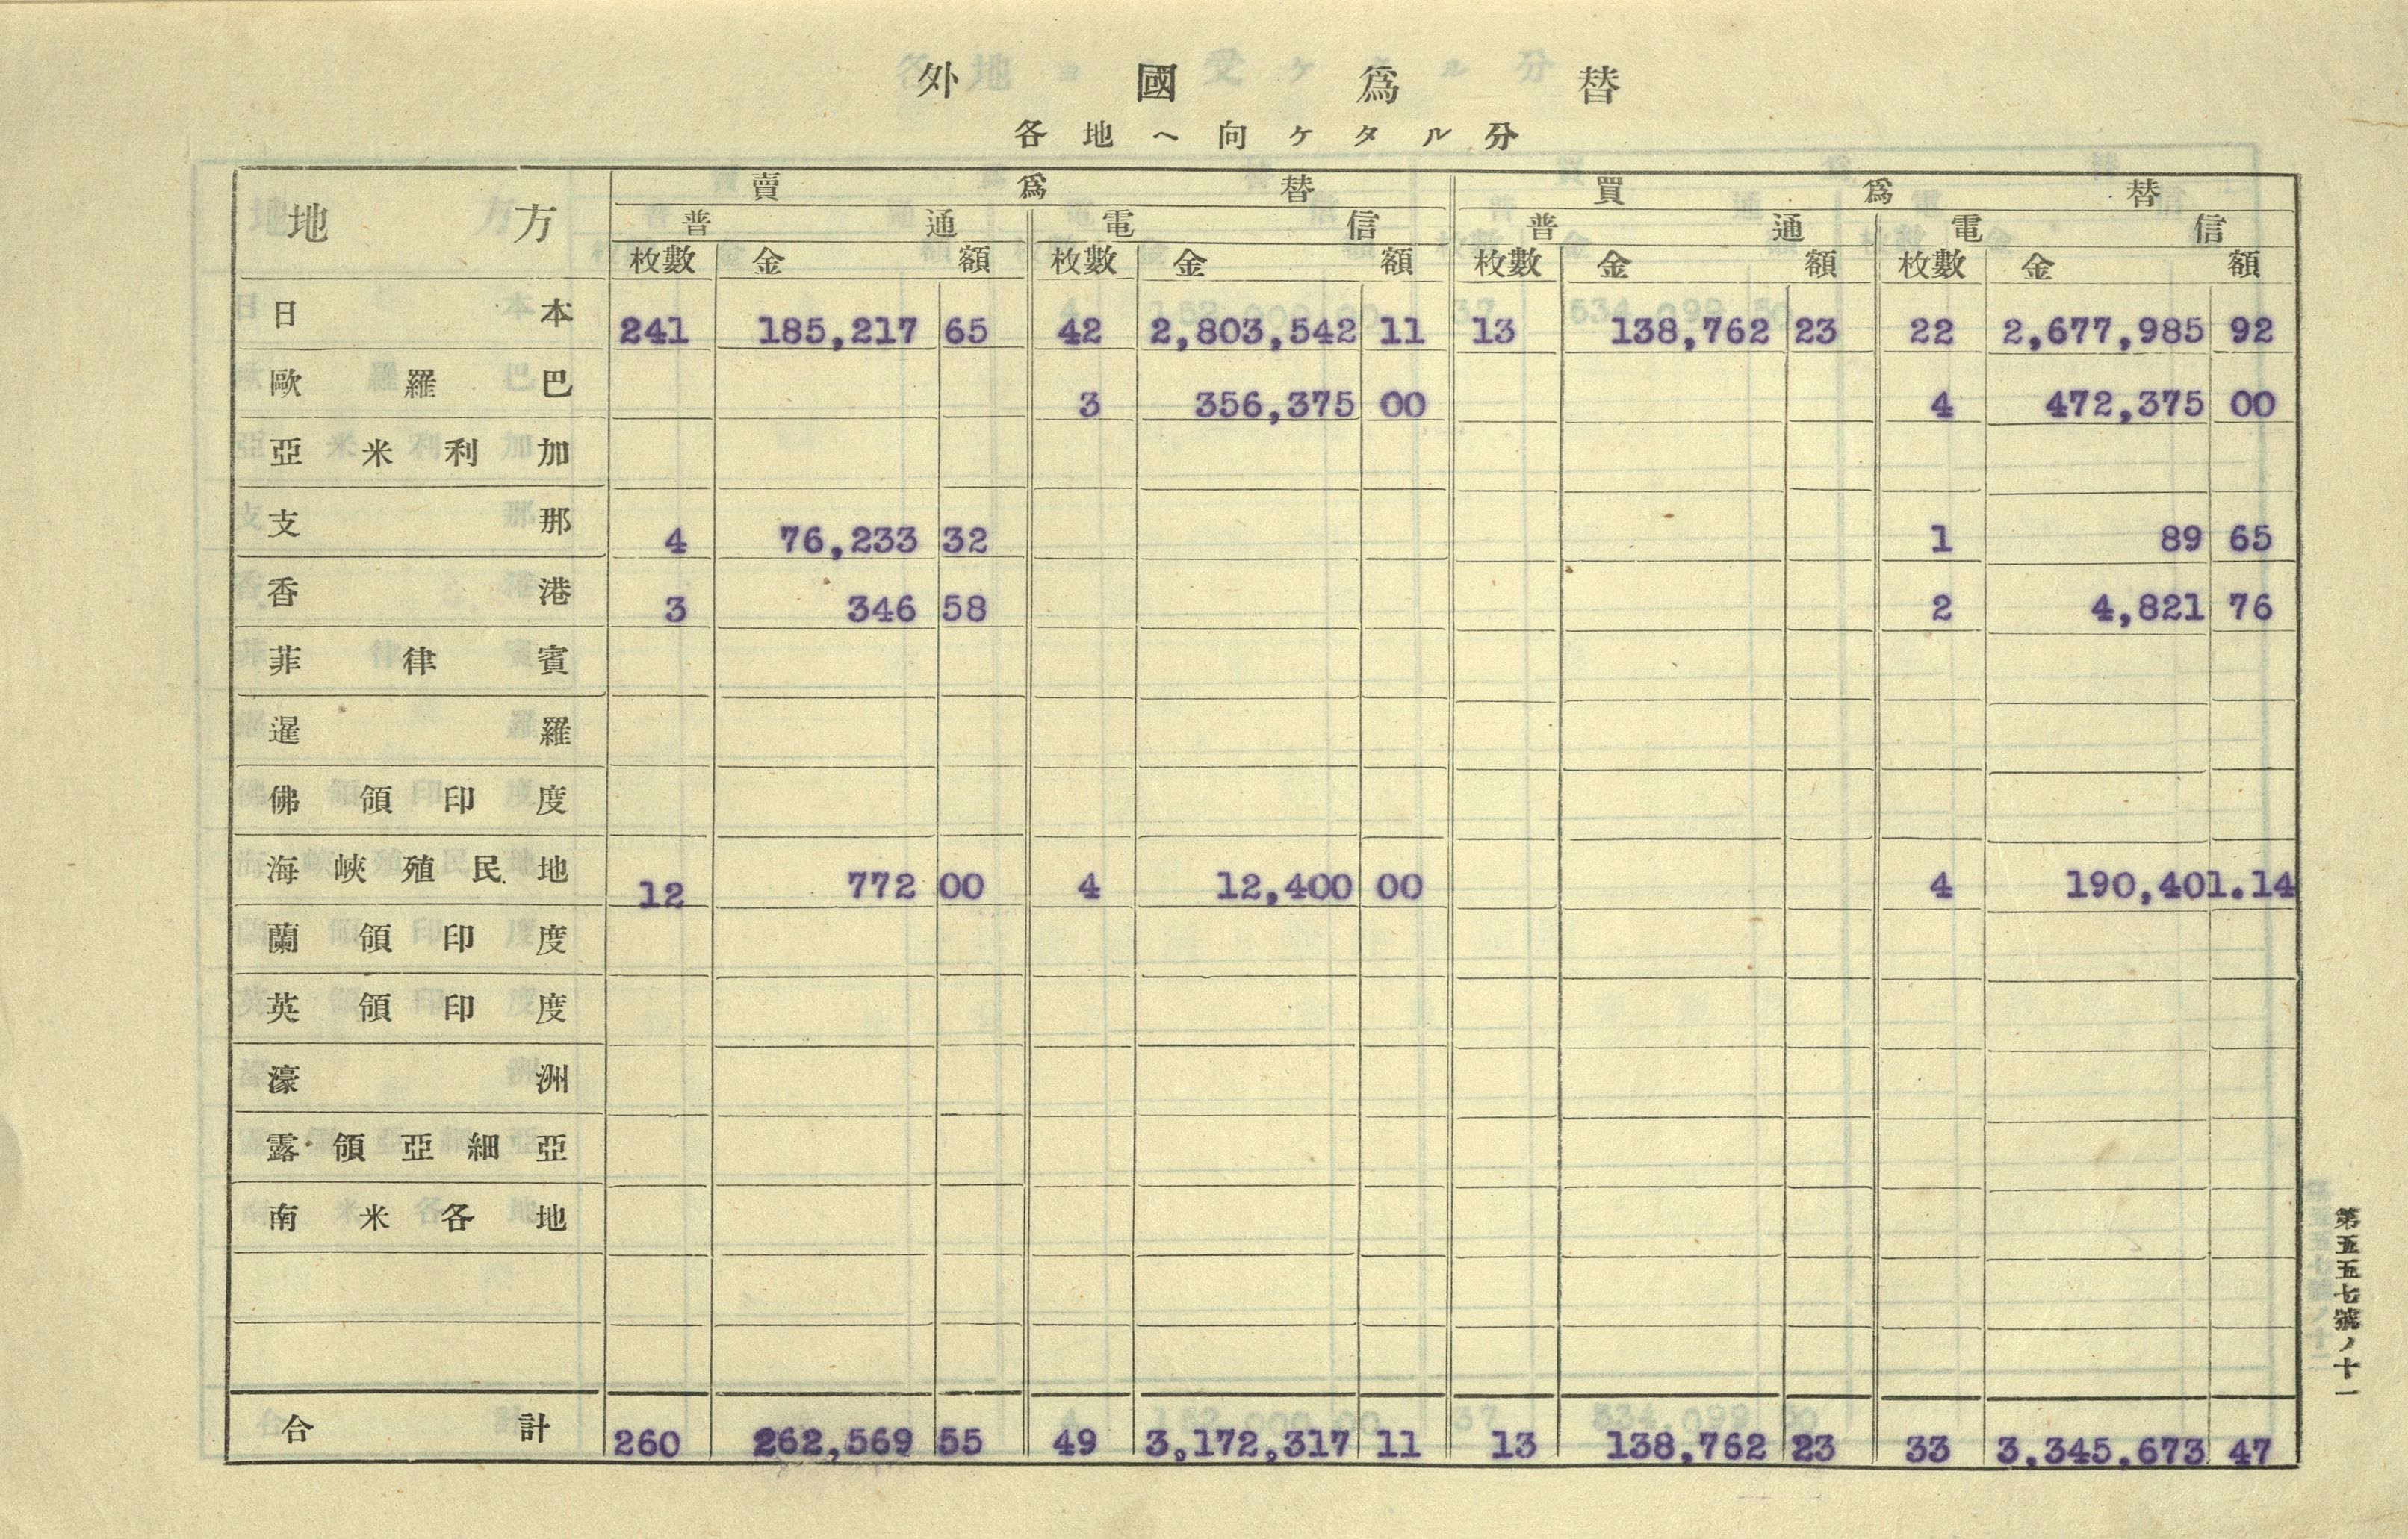 外國爲替
各地ヘ向ケタル分
地方 賣爲替 買爲替
普通 電信 普通 電信
枚數 金額 枚數 金額 枚數 金額 枚數 金額
日本 241 185,217 65 42 2,803,542 11 13 138,762 23 22 2,677,985 92
歐羅巴 3 356,375 00 4 472,375 00
亞米利加
支那 4 76,233 32 1 89 65
香港 3 346 58 2 4,821 76
菲律賓
暹羅
佛領印度
海峽殖民地 12 772 00 4 12,400 00 4 190,401.14
蘭領印度
英領印度
濠洲
露領亞細亞
南米各地
合計 260 262,569 55 49 3,172,317 11 13 138,762 23 33 3,345,673 47
第五五七號ノ十一